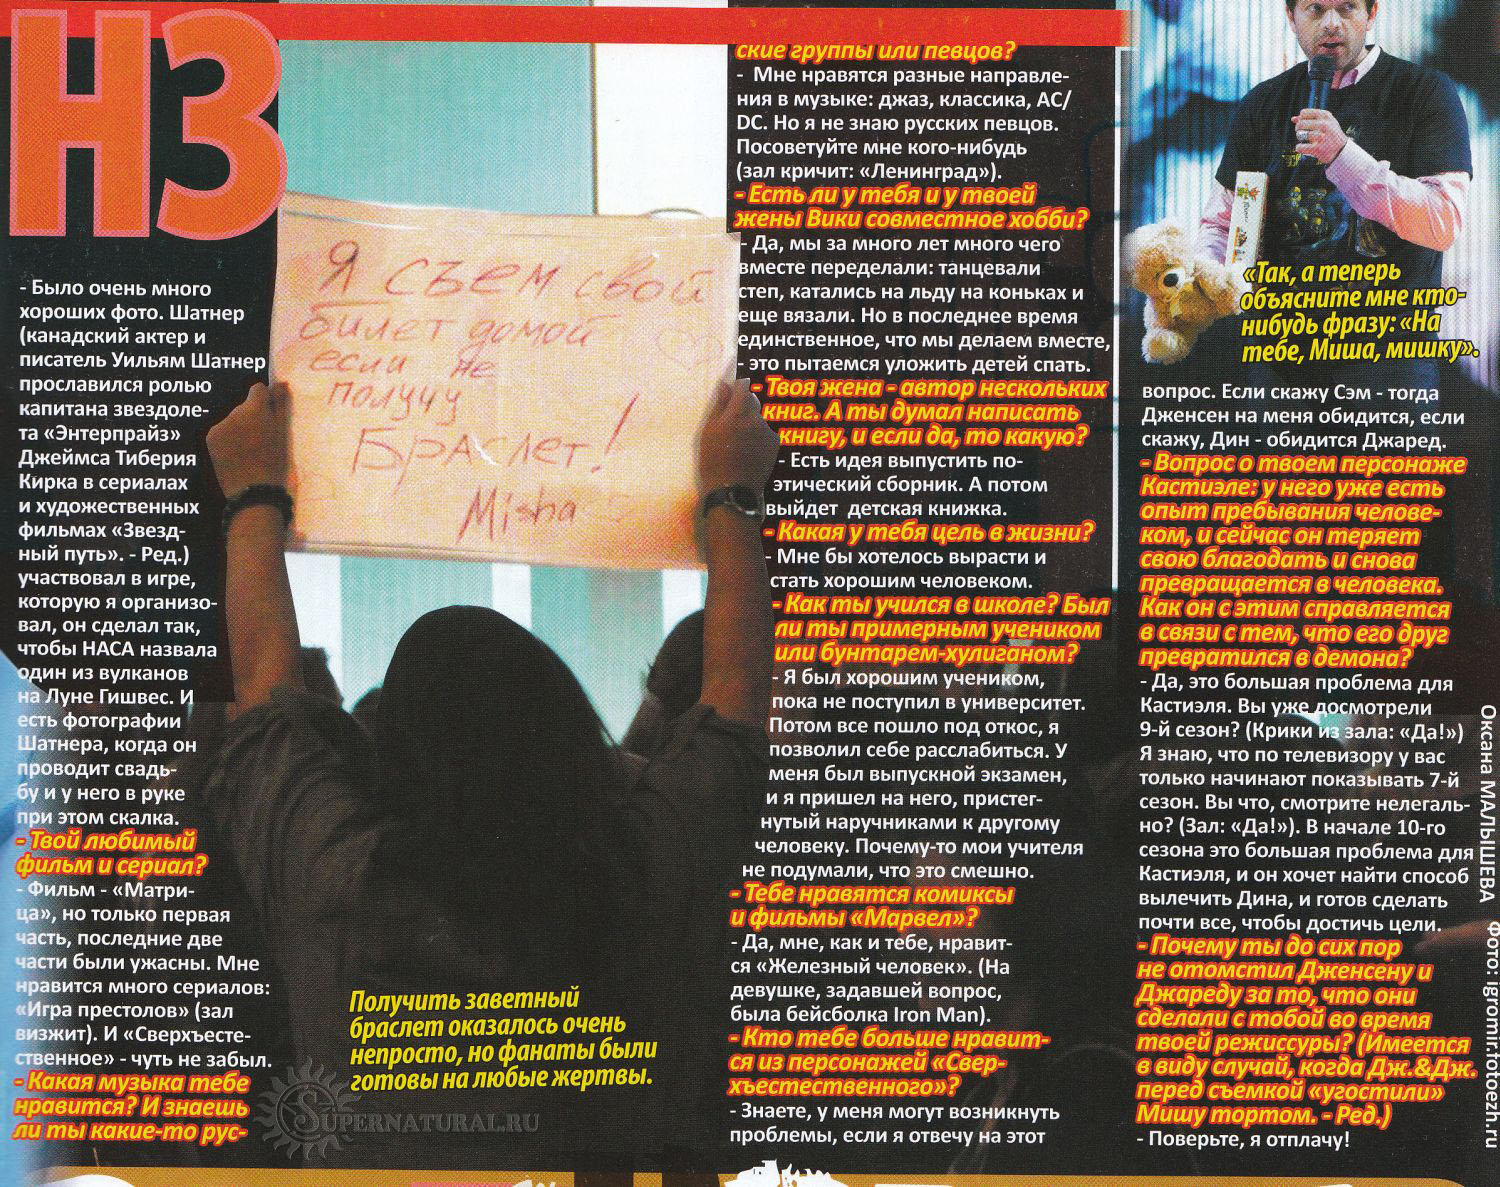 НЗ
- Было очень много
хороших фото. Шатнер
(канадский актер и
писатель Уильям Шатнер
прославился ролью
капитана звездоле-
та «Энтерпрайз»
Джеймса Тиберия
Кирка в сериалах
и художественных
фильмах «Звезд-
ный путь». - Ред.)
участвовал в игре,
которую я организо-
вал, он сделал так,
чтобы НАСА назвала
один из вулканов
на Луне Гишвес. И
есть фотографии
Шатнера, когда он
проводит свадь-
бу и у него в руке
при этом скалка.
- Твой любимый
фильм и сериал?
- Фильм - «Матри-
ца», но только первая
часть, последние две
части были ужасны. Мне
нравится много сериалов:
«Игра престолов» (зал
визжит). И «Сверхъесте-
ственное» - чуть не забыл.
- Какая музыка тебе
нравится? И знаешь
ли ты какие-то рус-
Я съем свой
билет домой
если не
получу
Браслет!
Misha
Получить заветный
браслет оказалось очень
непросто, но фанаты были
готовы на любые жертвы.
SUPERNATURAL.RU
ские группы или певцов?
- Мне нравятся разные направле-
ния в музыке: джаз, классика, AC/
DC. Но я не знаю русских певцов.
Посоветуйте мне кого-нибудь
(зал кричит: «Ленинград»).
- Есть ли у тебя и у твоей
жены Вики совместное хобби?
- Да, мы за много лет много чего
вместе переделали: танцевали
степ, катались на льду на коньках и
еще вязали. Но в последнее время
единственное, что мы делаем вместе,
- это пытаемся уложить детей спать.
- Твоя жена - автор нескольких
книг. А ты думал написать
книгу, и если да, то какую?
- Есть идея выпустить по-
этический сборник. А потом
выйдет детская книжка.
- Какая у тебя цель в жизни?
- Мне бы хотелось вырасти и
стать хорошим человеком.
- Как ты учился в школе? Был
ли ты примерным учеником
или бунтарем-хулиганом?
- Я был хорошим учеником,
пока не поступил в университет.
Потом все пошло под откос, я
позволил себе расслабиться. У
меня был выпускной экзамен,
и я пришел на него, пристег-
нутый наручниками к другому
человеку. Почему-то мои учителя
не подумали, что это смешно.
- Тебе нравятся комиксы
и фильмы «Марвел»?
- Да, мне, как и тебе, нравит-
ся «Железный человек». (На
девушке, задавшей вопрос,
была бейсболка Iron Man).
- Кто тебе больше нравит-
ся из персонажей «Свер-
хъестественного»?
- Знаете, у меня могут возникнуть
проблемы, если я отвечу на этот
«Так, а теперь
объясните мне кто-
нибудь фразу: «На
тебе, Миша, мишку».
вопрос. Если скажу Сэм - тогда
Дженсен на меня обидится, если
скажу, Дин - обидится Джаред.
- Вопрос о твоем персонаже
Кастиэле: у него уже есть
опыт пребывания челове-
ком, и сейчас он теряет
свою благодать и снова
превращается в человека.
Как он с этим справляется
в связи с тем, что его друг
превратился в демона?
- Да, это большая проблема для
Кастиэля. Вы уже досмотрели
9-й сезон? (Крики из зала: «Да!»)
Я знаю, что по телевизору у вас
только начинают показывать 7-й
сезон. Вы что, смотрите нелегаль-
но? (Зал: «Да!»). В начале 10-го
сезона это большая проблема для
Кастиэля, и он хочет найти способ
вылечить Дина, и готов сделать
почти все, чтобы достичь цели.
- Почему ты до сих пор
не отомстил Дженсену и
Джареду за то, что они
сделали с тобой во время
твоей режиссуры? (Имеется
в виду случай, когда Дж.&Дж.
перед съемкой «угостили»
Мишу тортом. - Ред.)
- Поверьте, я отплачу!
Оксана МАЛЫШЕВА Фото: igromir.fotoezh.ru